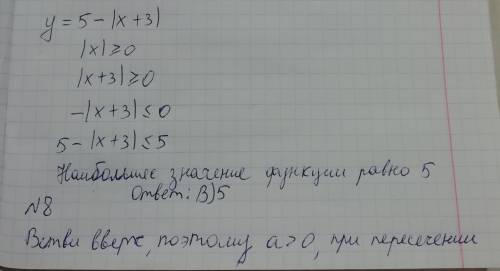 y = 5 - |x + 3|
|x| ≥ 0
|x+3| ≥ 0
-|x+3| ≤ 0
5 - |x+3| ≤ 5
Наибольшее значение функции равно 5
Ответ: В) 5
№8
Ветви вверх, поэтому a > 0, при пересечении